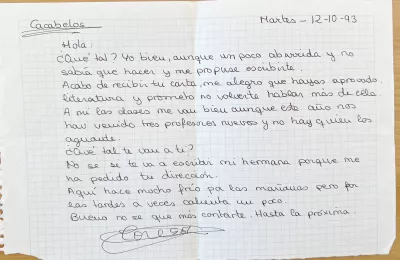 Cacabelos
Martes - 12-10-93
Hola:
¿Qué tal? Yo bien, aunque un poco aburrida y no
sabía que hacer y me propuse escribirte.
Acabo de recibir tu carta, me alegro que hayas aprobado
literatura y prometo no volverte hablar más de ella.
A mí las clases me van bien aunque este año nos
han venido tres profesores nuevos y no hay quien los
aguante.
¿Qué tal te van a ti?
No se si te va a escribir mi hermana porque me
ha pedido tu dirección.
Aquí hace mucho frío pa las mañanas pero por
las tardes a veces calienta un poco.
Bueno no se que más contarte. Hasta la próxima.